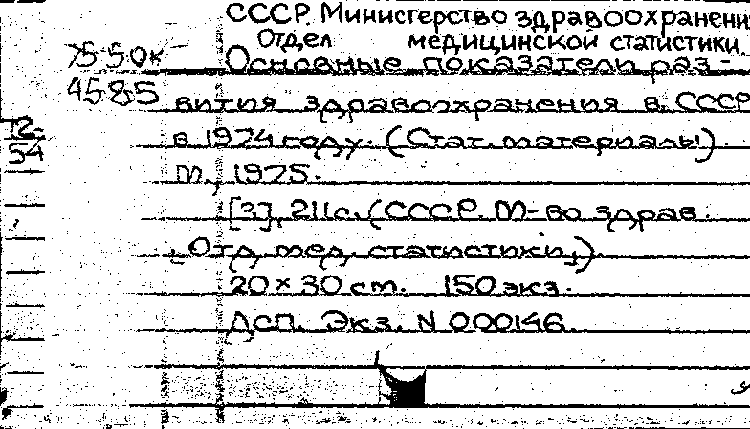 СССР. Министерство здравоохранени
Отдел медицинской статистики.
75-5.0к
Основные показатели раз-
4585
вития здравоохранения в СССР
в 1974 году. (Стат. материалы)
12-
54
М., 1975.
[3], 211с. (СССР. М-во здрав.
Отд. мед. статистики.)
20×30 см. 150 экз.
ДСП. Экз. N 000146.